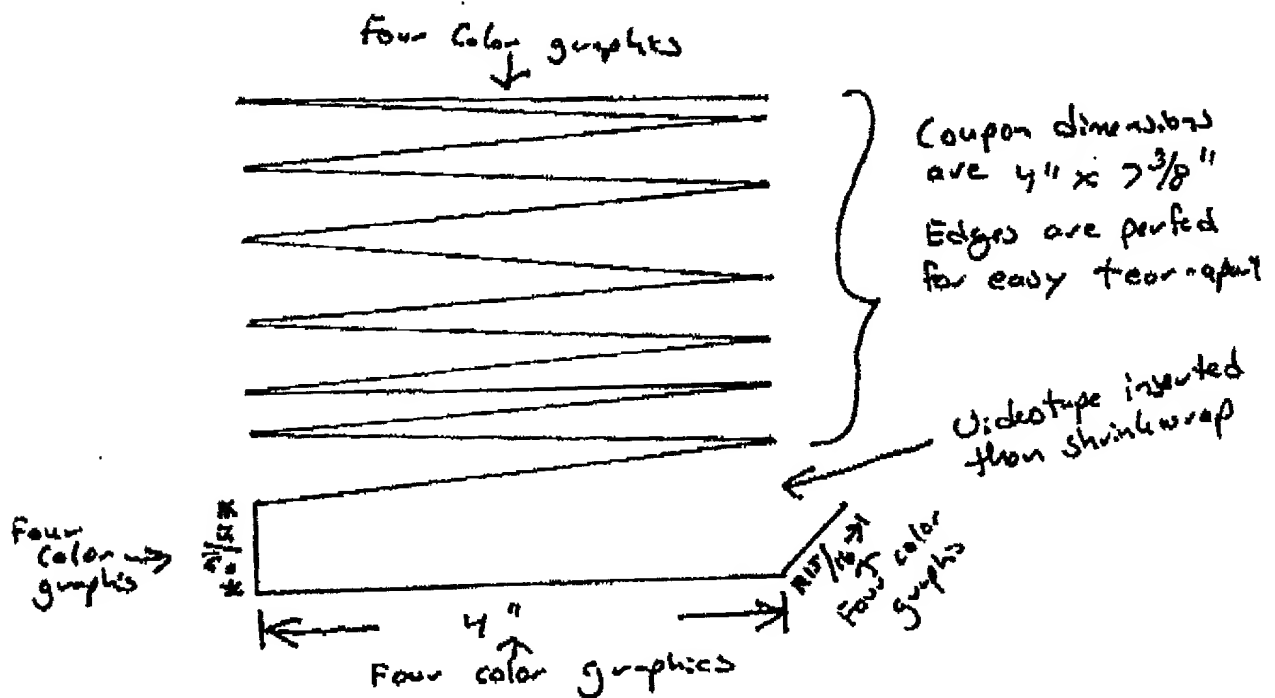 Four Color graphics
Coupon dimensions
are 4" x 7 3/8"
Edges are perfed
for easy tear-apart
Videotape inserted
then shrinkwrap
Four
color
graphis
15/16
15/16
Four color
graphis
4"
Four color graphics